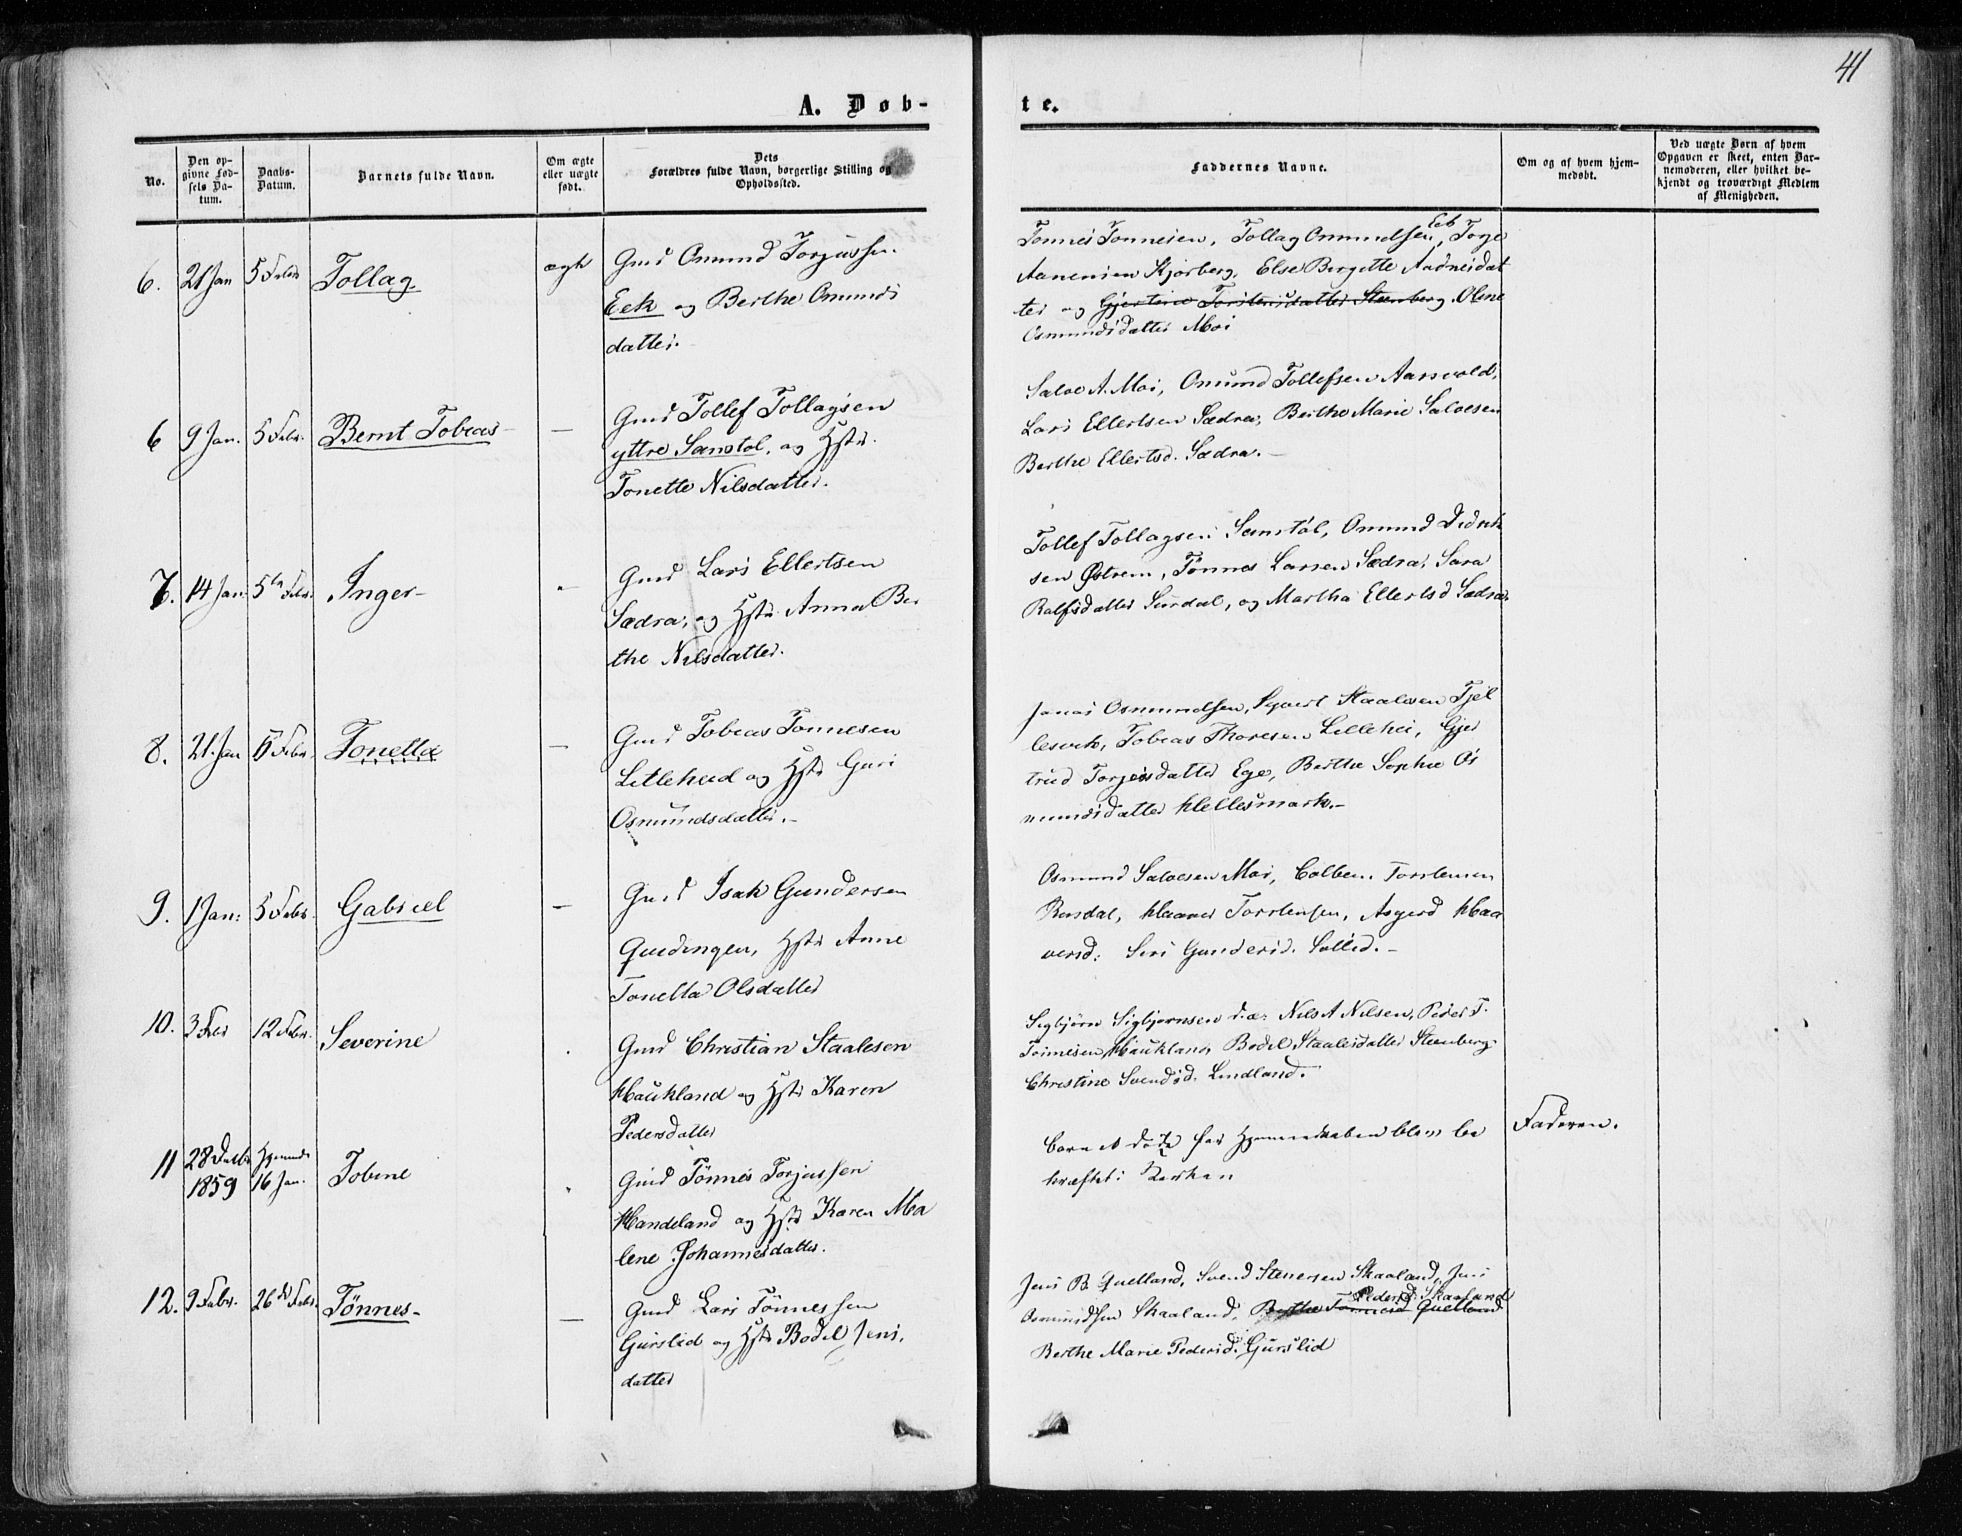 41
A. Døb-
te.
No.
Den op-
givne Fød-
sels Da-
tum.
Daabs-
Datum.
Barnets fulde Navn.
Om ægte
eller uægte
født.
Dets
Forældres fulde Navn, borgerlige Stilling og
Opholdssted.
Faddernes Navne.
Om og af hvem hjem-
medøbt.
Ved uægte Børn af hvem
Opgaven er skeet, enten Bar-
nemoderen, eller hvilket be-
kjendt og troværdigt Medlem
af Menigheden.
6. 21 Jan 5 Febr Tollag ægte
Gmd Omund Torjussen
Eek og Berthe Omunds
datter.
Tønnes Tønnesen, Tollag Omundsen Eek, Torje
Aanensen Kjørberg, Else Bergette Aadnesdat
ter og Gjertine Torstensdatter Steenberg. Olene
Osmundsdatter Moi
6 9 Jan. 5 Febr. Bernt Tobias —
Gmd Tollef Tollagsen
yttre Sæmstøl, og Hstr.
Tonette Nilsdatter.
Saloe A. Moi, Omund Tollefsen Aarrvold,
Lars Ellertsen Sædra, Berthe Marie Saloesen
Berthe Ellertsd. Sædra. —
7. 14 Jan. 5te Febr. Inger -
Gmd Lars Ellertsen
Sædra, og Hstr. Anna Ber
the Nilsdatter.
Tollef Tollagsen Sæmstøl, Omund Didrik
sen Østrem, Tønnes Larsen Sædra, Sara
Rolfsdatter Surdal, og Martha Ellertsd Sædra.
8. 21. Jan 5 Febr. Tonella —
Gmd Tobias Tonnesen
Litleheed og Hstr Guri
Osmundsdatter. -
Jonas Osmundsen, Sigvert Staalesen Fjel
lesvek, Tobias Thoresen Lillehei, Gjer
trud Torjersdatter Ege, Berthe Sophie Os
mundsdatter Hellesmark. -
9. 1 Jan: 5 Febr. Gabriel —
Gmd Isak Gundersen
Quedingen, Hstr Anne
Tonetta Olsdatter
Osmund Saloesen Moi, Colben Torstensen
Rosdal, Haaver Torstensen, Asgerd Haa
versd: Siri Gundersd. Sollid. -
10. 3 Febr 12 Febr. Severine
Gmd Christian Staalesen
Haukland og Hstr Karen
Pedersdatter
Sigbjørn Sigbjørnsen Nils A Nilsen, Peder T.
Tonnesen Haukland, Bodel Staalesdatter Steenberg
Christine Svendsd. Lindland.
11 28 Decbr 1859 Hjemmed. 16 Jan. Tobine
Gmd Tønnes Torjussen
Handeland og Hstr Karen Ma
lene Johannesdatter.
Barnet døde før Hjemmedaaben blev be
kræftet i Kirken
Faderen.
12. 9 Febr. 26de Febr. Tønnes - —
Gmd Lars Tönnessen
Gurslid og Hstr Bodel Jens.
datter
Jens B. Quelland, Svend Stenersen Skaaland, Jens
Osmundsen Skaaland, Berthe Tonnesd Quelland Pedersd. Skaaland
Berthe Marie Pedersd. Gurslid